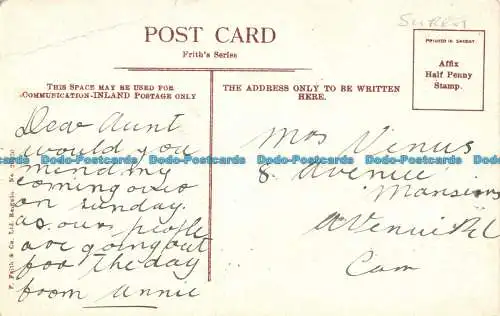 SURREY
POST CARD
Frith's Series
PRINTED IN SAXONY
Affix
Half Penny
Stamp.
THIS SPACE MAY BE USED FOR
COMMUNICATION-INLAND POSTAGE ONLY
THE ADDRESS ONLY TO BE WRITTEN
HERE.
Dear Aunt
would you
mind my
coming over
on sunday.
as our people
are going out
for the day
from Annie
Mrs Venus
8 avenue
Mansions
Avenue Rd
Cam
F. Frith & Co. Ltd. Reigate. No.
Dodo-Postcards Dodo-Postcards Dodo-Postcards Dodo-Postcards
Dodo-Postcards Dodo-Postcards Dodo-Postcards Dodo-Postcards